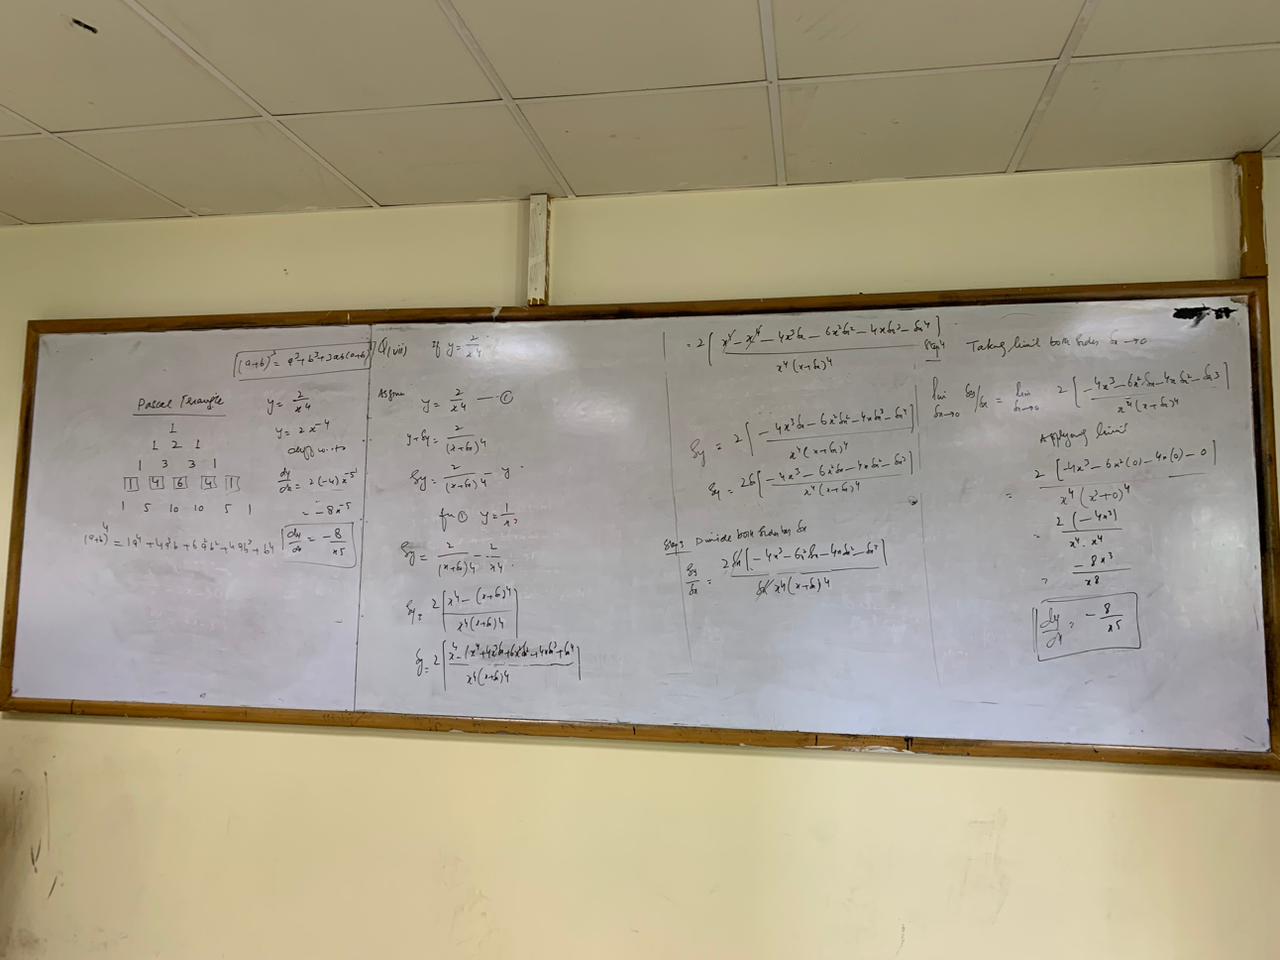 (a+b)³ = a³+b³+3ab(a+b)
Pascal Triangle
1
1 2 1
1 3 3 1
1 4 6 4 1
1 5 10 10 5 1
(a+b)⁴ = 1a⁴+4a³b+6a²b²+4ab³+b⁴
y = 2/x⁴
y = 2x⁻⁴
diff w.r.to
dy/dx = 2(-4)x⁻⁵
= -8x⁻⁵
dy/dx = -8/x5
Q(vii) If y = 2/x⁴
Assume
y = 2/x⁴ — ①
y+δy = 2/(x+δx)⁴
δy = 2/(x+δx)⁴ - y
① y = 1/x²
δy = 2/(x+δx)4 - 2/x4.
δy = 2[x⁴-(x+δx)⁴/x⁴(x+δx)4]
δy = 2[x⁴-(x⁴+4x³δx+6x²δx²+4xδx³+δx⁴/x⁴(x+δx)4]
= 2[x⁴-x⁴-4x³δx-6x²δx²-4xδx³-δx⁴/x⁴(x+δx)⁴]
δy = 2[-4x³δx-6x²δx²-4xδx³-δx⁴/x⁴(x+δx)⁴]
δy = 2δ[-4x³-6x²δx-4xδx²-δx³/x⁴(x+δx)⁴]
Step 3 Divide both sides by δx
δy/δx = 2δx[-4x³-6x²δx-4xδx²-δx³]/δx x⁴(x+δx)⁴
Step 4 Taking limit both sides δx→0
lim δx→0 δy/δx = lim δx→0 2[-4x³-6x²δx-4xδx²-δx3/x⁴(x+δx)⁴]
Applying limit
= 2[-4x³-6x²(0)-4x(0)-0]/x⁴(x+0)⁴
= 2(-4x³)/x⁴.x⁴
= -8x³/x8
dy/dx = -8/x5